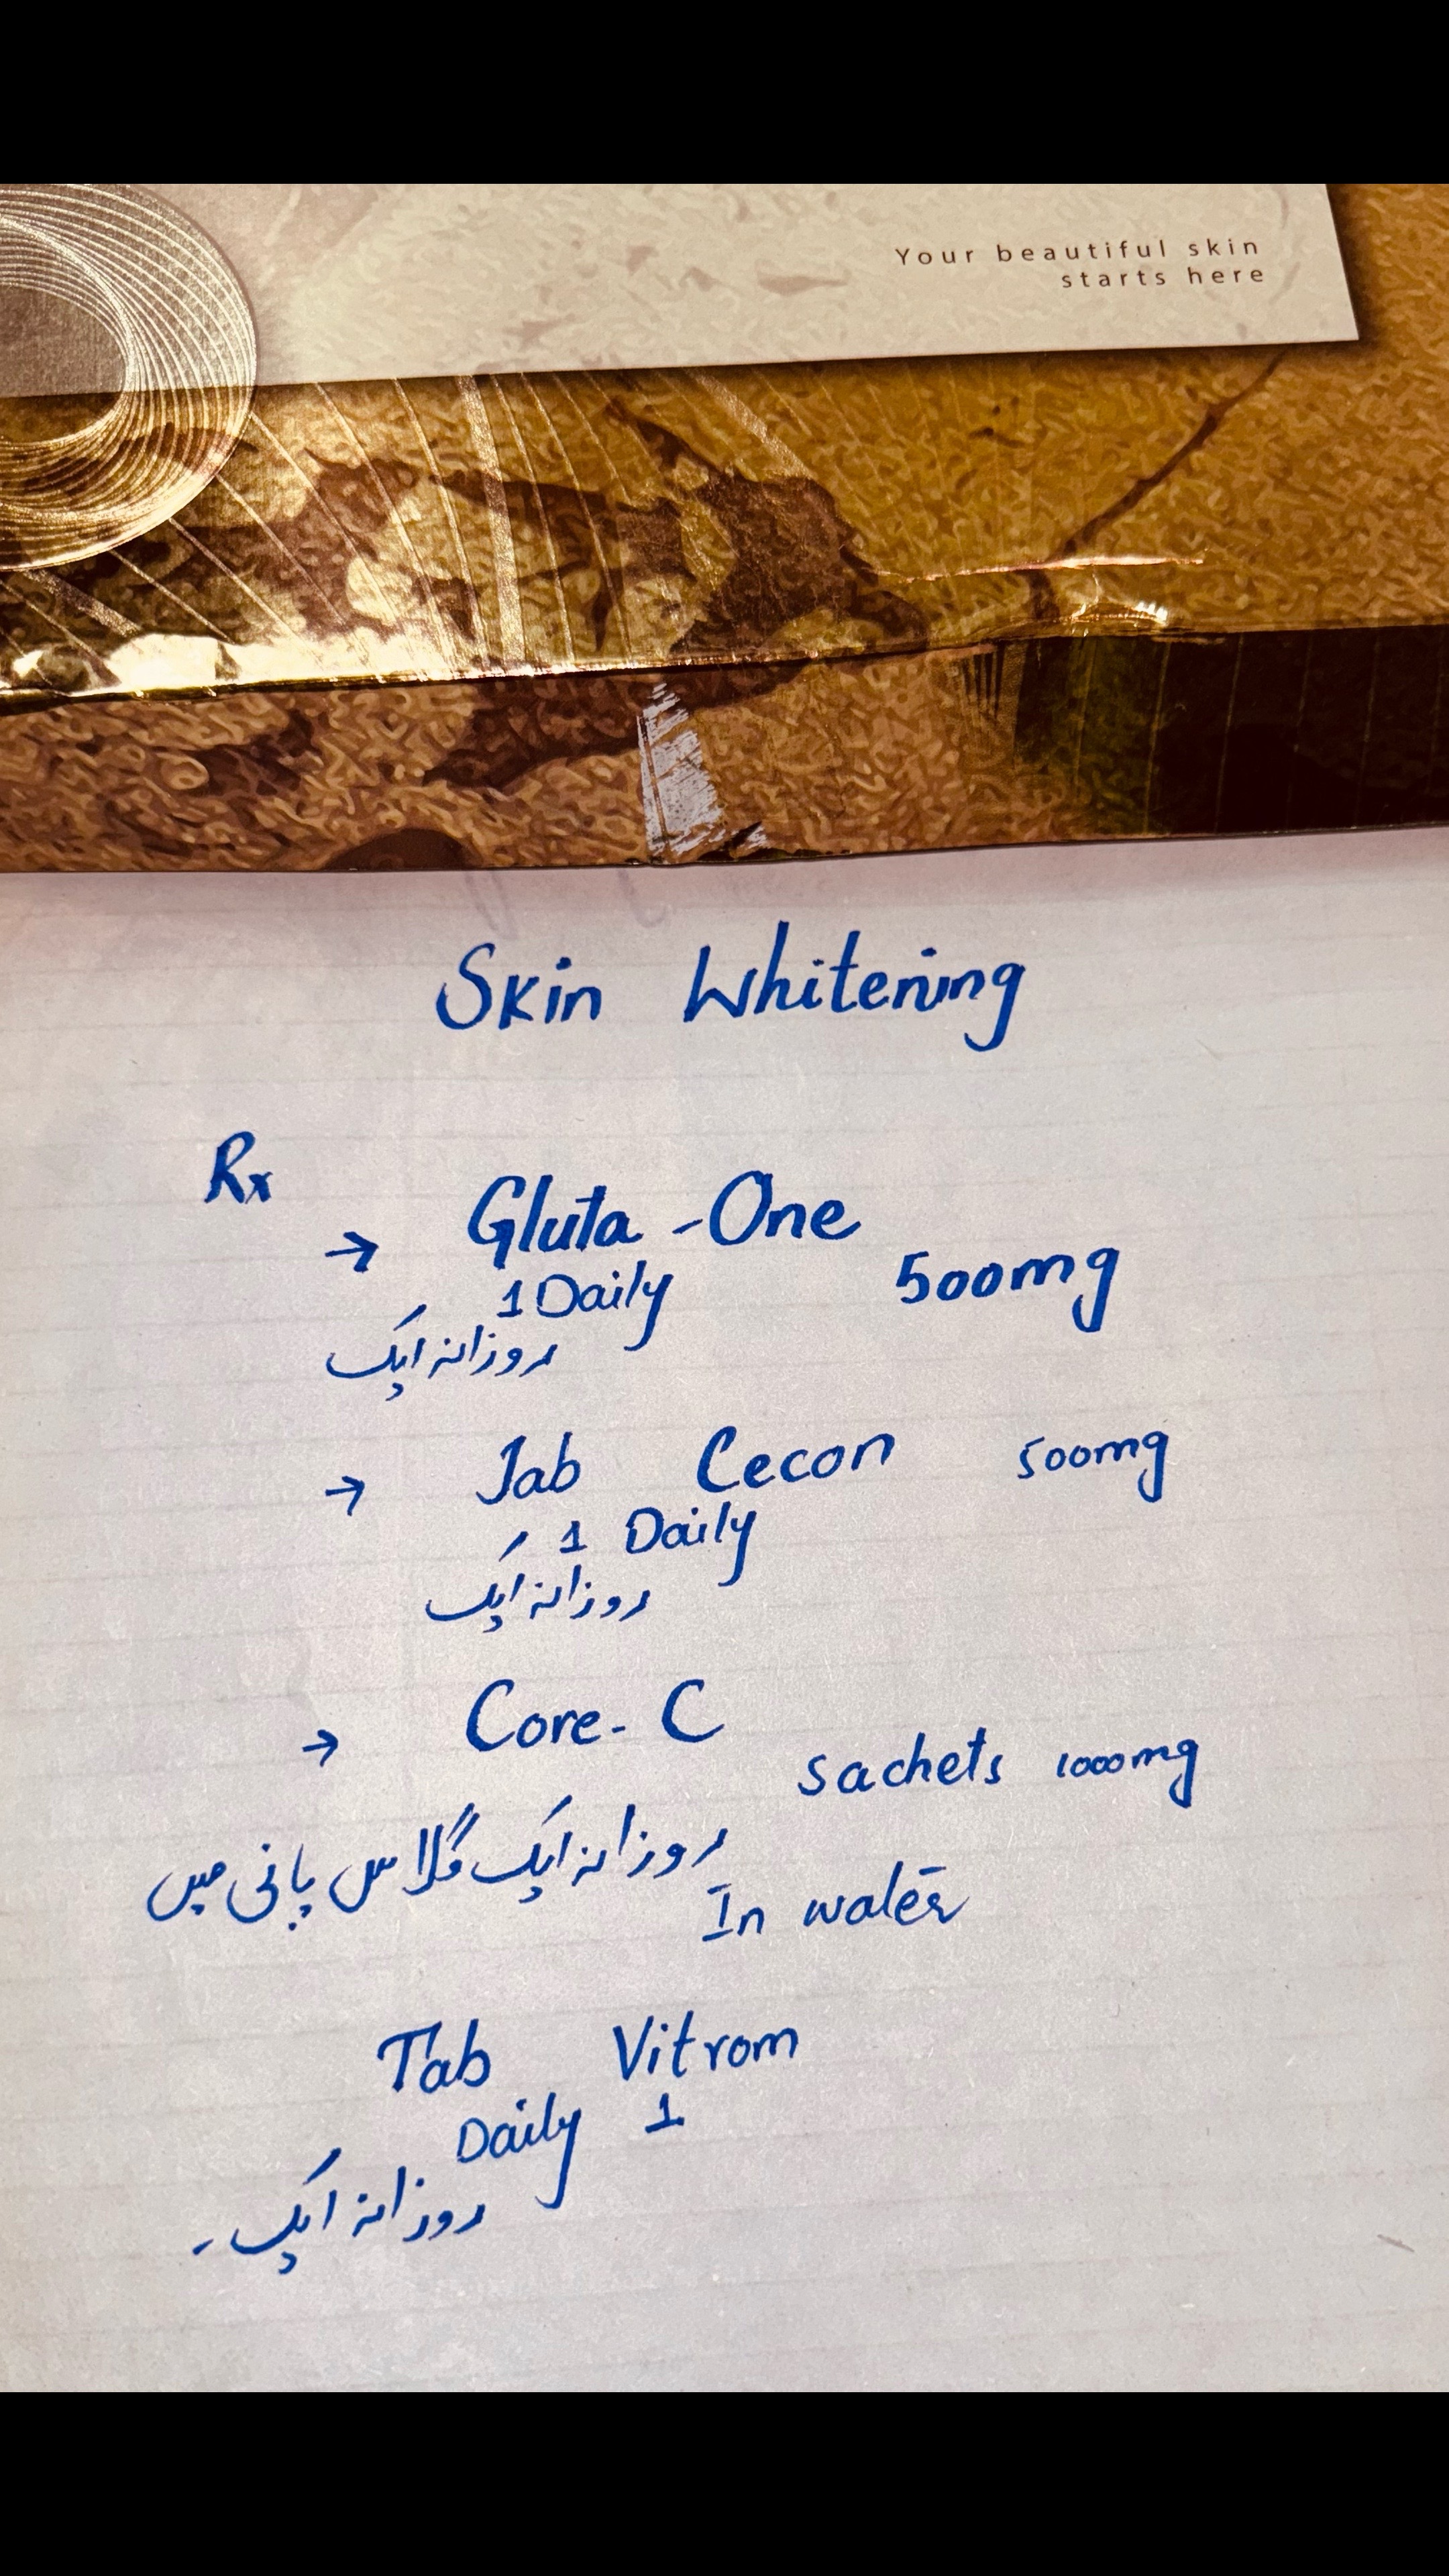 Your beautiful skin
starts here
Skin Whitening
Rx
→ Gluta-One 500mg
1 Daily
روزانہ ایک
→ Tab Cecon 500mg
1 Daily
روزانہ ایک
→ Core-C
Sachets 1000mg
روزانہ ایک گلاس پانی میں
In water
Tab Vitrom
Daily 1
روزانہ ایک ۔